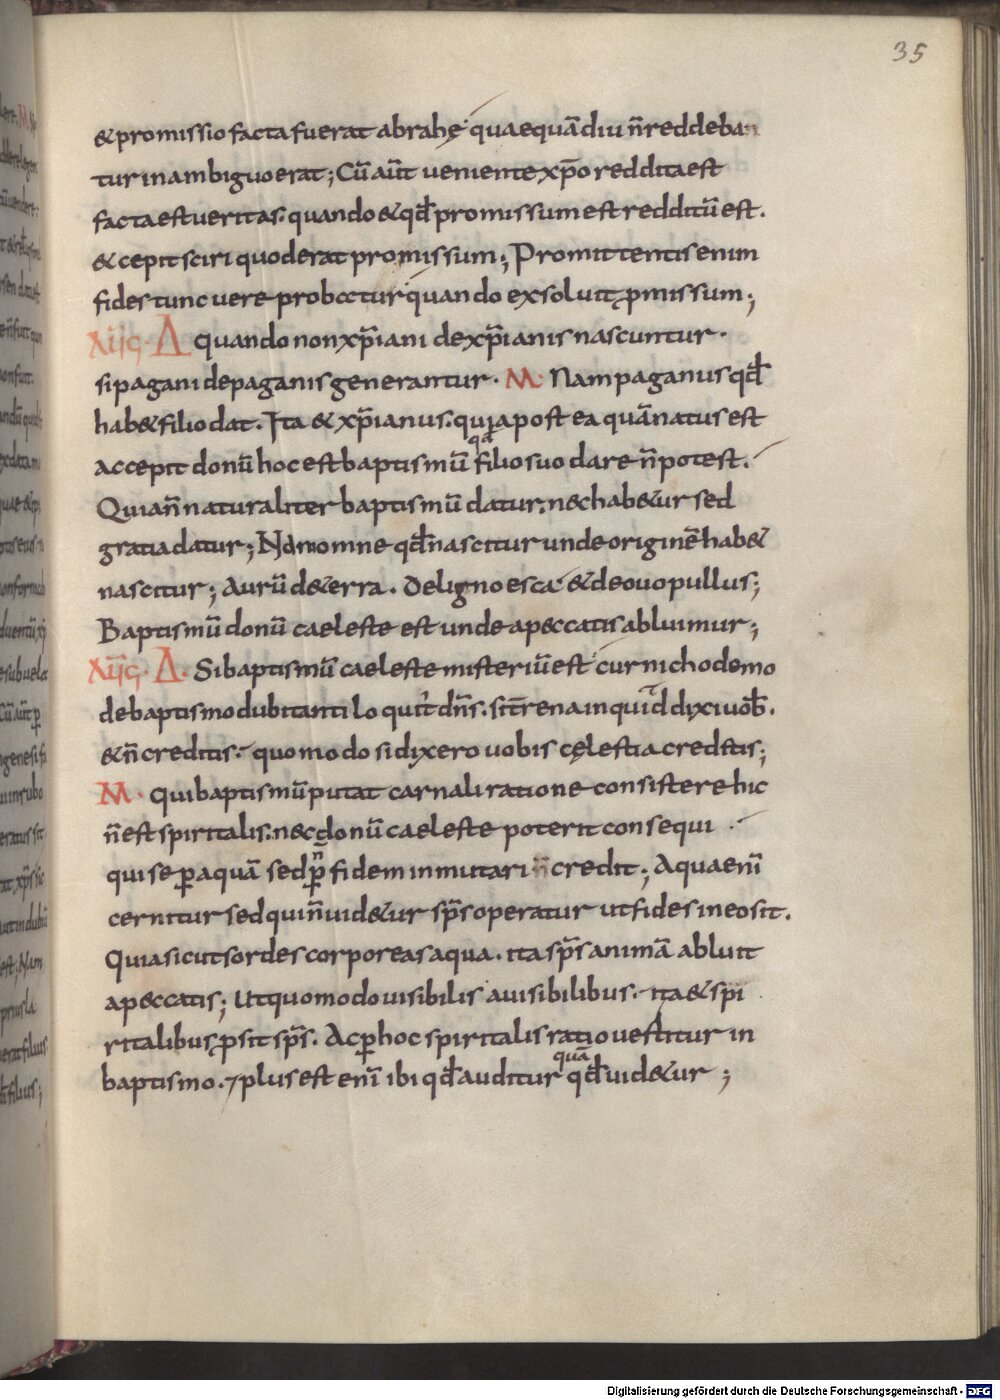 35
& promissio facta fuerat abrahę quae quādiu n̄ reddeban
tur in ambiguo erat; Cū aūt veniente xp̄o reddita est
facta est veritas. quando & qd̄ promissum est redditū est.
& cepit sciri quod erat promissum; Promittentis enim
fides tunc vere probatur quando exsoluit p̱missum;
Δ quando non xp̄iani de xp̄ianis nascuntur.
si pagani de paganis generantur. M. Nam paganus qd̄
hab& filio dat. Ita & xp̄ianus. quia post ea quā natus est
accepit donū hoc est baptismū qđ filio suo dare n̄ potest.
Quia n̄ naturaliter baptismū datur. nec hab&ur sed
gratia datur; Nām omne qd̄ nascitur unde originē hab&
nascitur; Aurū de terra. De ligno esca & de ovo pullus;
Baptismū donū caeleste est unde a peccatis abluimur;
Δ. Si baptismū caeleste misteriū est cur nichodemo
de baptismo dubitanti loquit̄ dn̄s. si t̄rena inquid dixi uob̄.
& n̄ creditis. quomodo si dixero uobis cęlestia creditis;
M. Qui baptismū putat carnali ratione consistere hic
n̄ est spiritalis. nec donū caeleste poterit consequi
qui se p̱ aquā sed p̱ fidem inmutari n̄ credit; Aqua enī
cernitur sed qui n̄ uid&ur sp̄s operatur ut fides in eo sit.
Quia sicut sordes corporeas aqua. ita sp̄s animā abluit
a peccatis; Ut quomodo uisibilis a uisibilibus. ita & spi
ritalibus p̱sit sp̄s. Ac p̱ hoc spiritalis ratio uestitur in
baptismo. 7 plus est enī ibi qd̄ auditur quā qd̄ uid&ur;
Digitalisierung gefördert durch die Deutsche Forschungsgemeinschaft - DFG